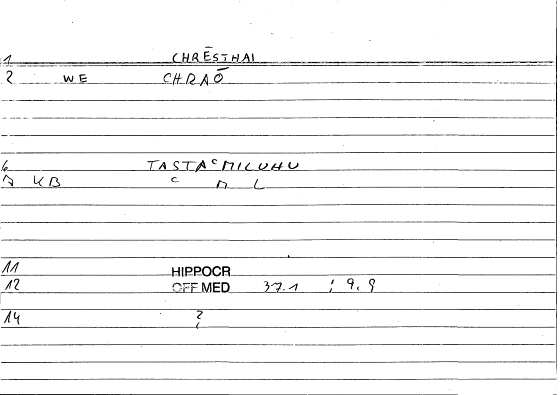 1 CHRĒSTHAI
2 WE CHRAŌ
6 TASTAᶜMILUHU
7 KB ᶜ M L
11 HIPPOCR
12 OFF MED 37.1 ; 9.9
14 ?